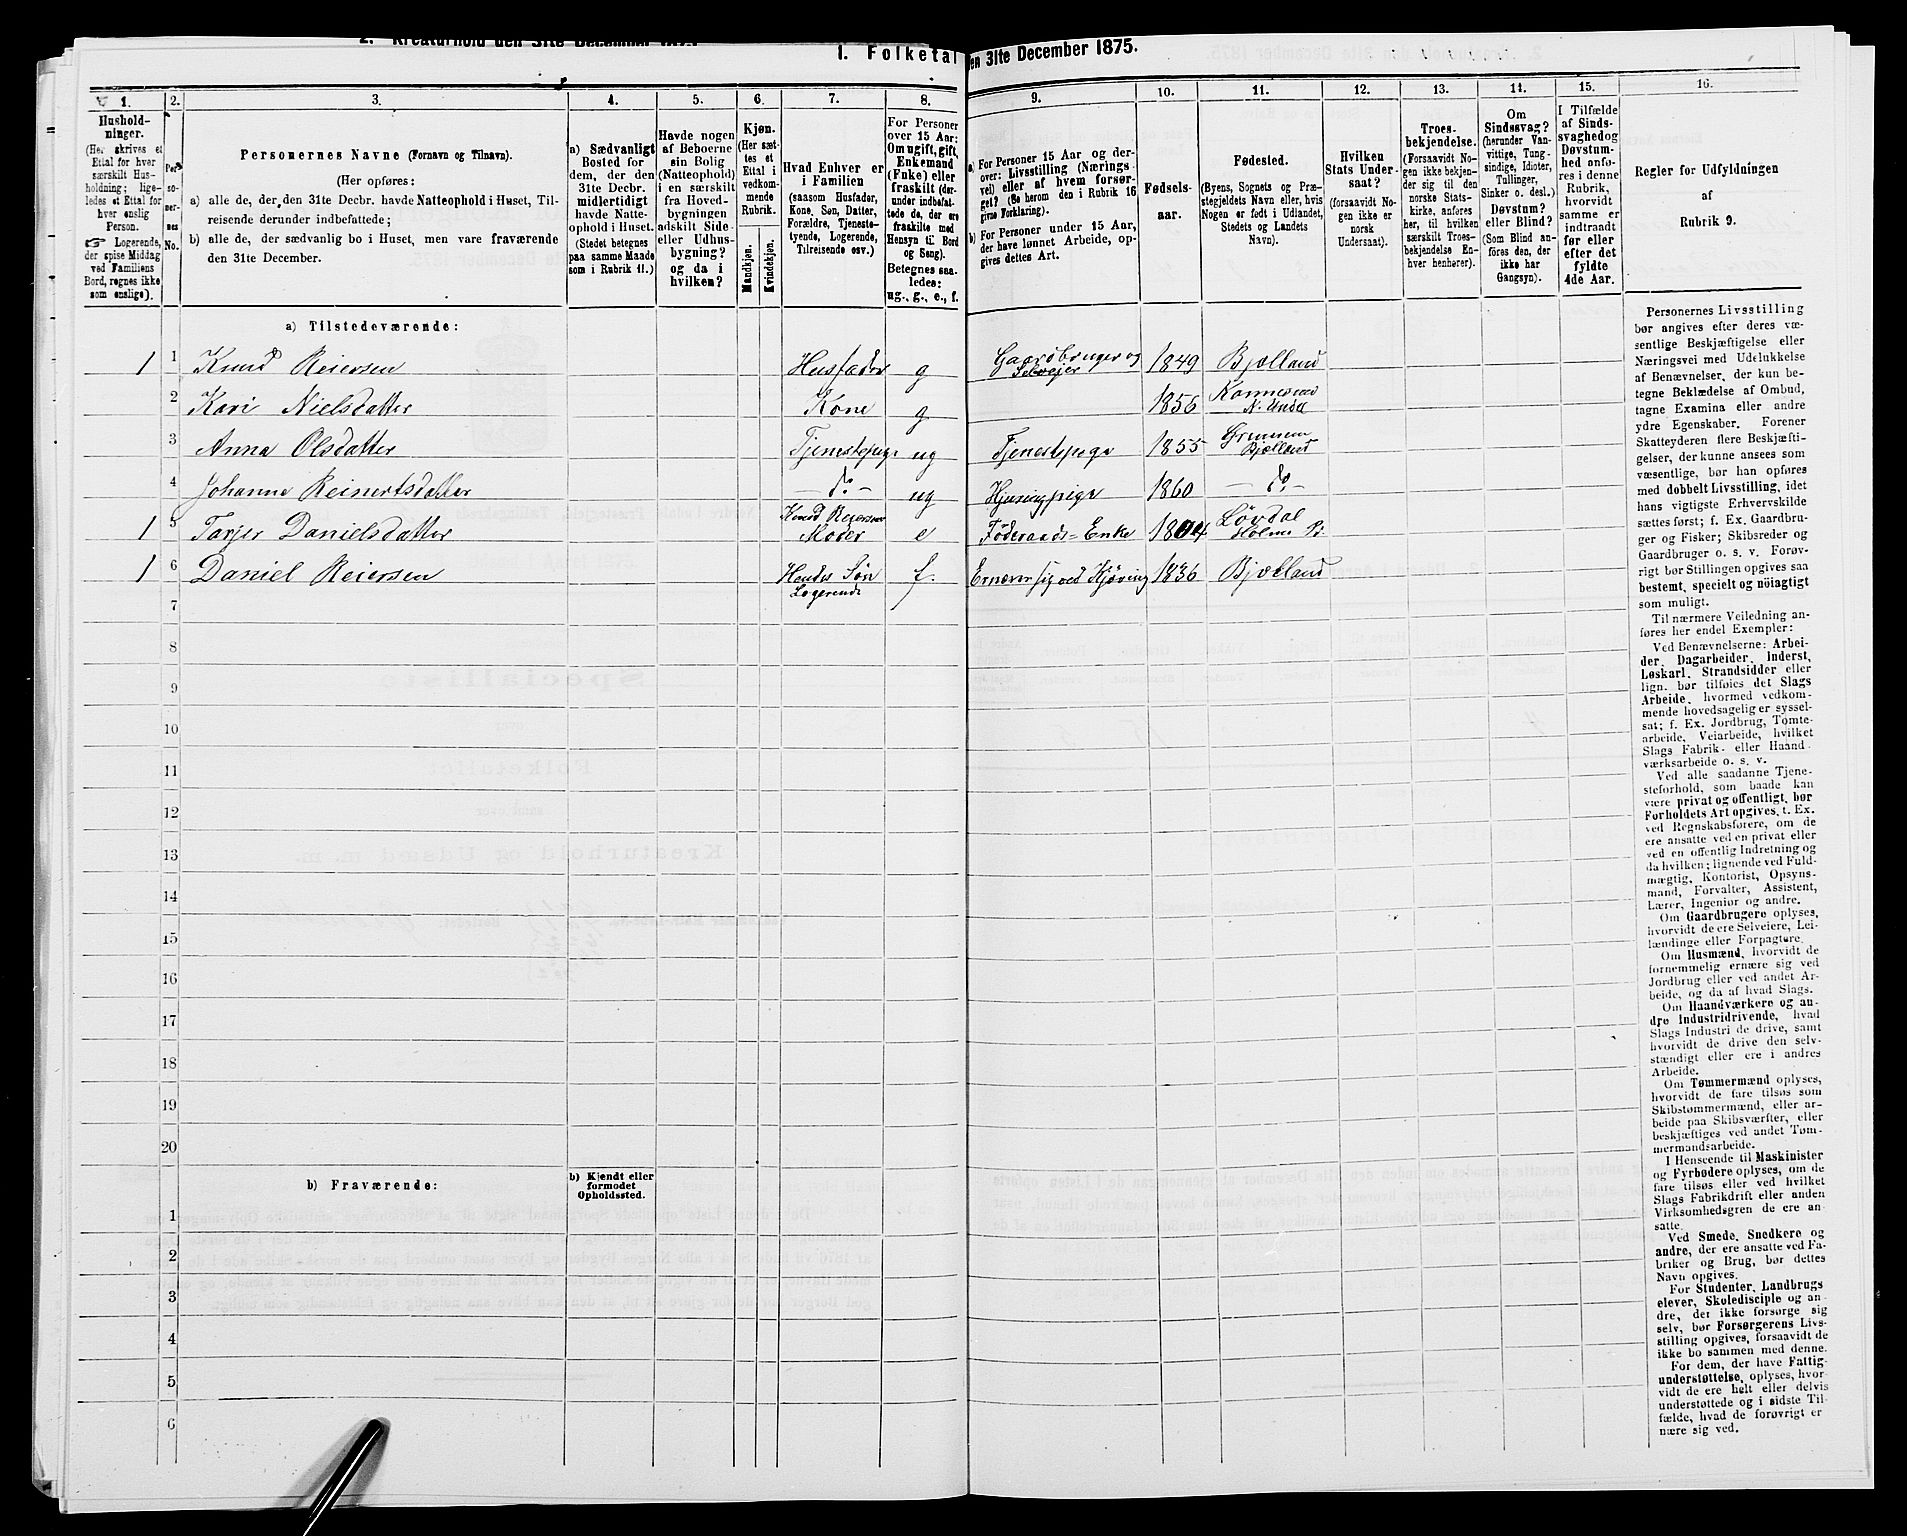 2. Kreaturhold den 31te December 1875
1. Folketal den 31te December 1875.
1. 2. 3. 4. 5. 6. 7. 8. 9. 10. 11. 12. 13. 14. 15. 16.
Hushold-
ninger.
(Her skrives et
Ettal for hver
særskilt Hus-
holdning; lige-
ledes et Ettal for
hver enslig
Person.
☞ Logerende,
der spise Middag
ved Familiens
Bord, regnes ikke
som enslige).
Per-
so-
ner-
nes
No.
Personernes Navne (Fornavn og Tilnavn).
(Her opføres:
a) alle de, der den 31te Decbr. havde Natteophold i Huset, Til-
reisende derunder indbefattede;
b) alle de, der sædvanlig bo i Huset, men vare fraværende
den 31te December.
a) Sædvanligt
Bosted for
dem, der den
31te Decbr.
midlertidigt
havde Natte-
ophold i Huset.
(Stedet betegnes
paa samme Maade
som i Rubrik 11.)
Havde nogen
af Beboerne
sin Bolig
(Natteophold)
i en særskilt
fra Hoved-
bygningen
adskilt Side-
eller Udhus-
bygning?
og da i
hvilken?
Kjøn.
(Her sæt-
tes et
Ettal i
vedkom-
mende
Rubrik.
Mandkjøn.
Kvindekjøn.
Hvad Enhver er
i Familien
(saasom Husfader,
Kone, Søn, Datter,
Forældre, Tjeneste-
tyende, Logerende,
Tilreisende osv.)
For Personer
over 15 Aar:
Om ugift, gift,
Enkemand
(Enke) eller
fraskilt (der-
under indbefat-
tede de, der ere
fraskilte med
Hensyn til Bord
og Seng).
Betegnes saa-
ledes:
ug., g., e., f.
a) For Personer 15 Aar og der-
over: Livsstilling (Nærings-
vei) eller af hvem forsør-
get? (Se herom den i Rubrik 16
givne Forklaring).
b) For Personer under 15 Aar,
der have lønnet Arbeide, op-
gives dettes Art.
Fødsels-
aar.
Fødested.
(Byens, Sognets og Præ-
stegjeldets Navn eller, hvis
Nogen er født i Udlandet,
Stedets og Landets
Navn).
Hvilken
Stats Under-
saat?
(forsaavidt No-
gen ikke er
norsk
Undersaat).
Troes-
bekjendelse.
(Forsaavidt No-
gen ikke bekjen-
der sig til den
norske Stats-
kirke, anføres
her, til hvilken
særskilt Troes-
bekjendelse En-
hver henhører).
Om
Sindssvag?
(herunder Van-
vittige, Tung-
sindige, Idioter,
Tullinger,
Sinker o. desl.)
Døvstum?
eller Blind?
(Som Blind an-
føres den, der
ikke har
Gangsyn).
I Tilfælde
af Sinds-
svaghed og
Døvstum-
hed onfø-
res i denne
Rubrik,
hvorvidt
samme er
indtraadt
før eller
efter det
fyldte
4de Aar.
Regler for Udfyldningen
af
Rubrik 9.
a) Tilstedeværende:
1 1 Knud Reiersen Husfader g Gaardbruger og Selvejer 1849 Bjelland
2 Kari Nielsdatter Kone g 1856 N. Undal
3 Anna Olsdatter Tjenestepige ug Tjenestepige 1855 Bjelland
4 Johanne Reinertsdatter — do. — ug 1860 — do. —
1 5 Tarjer Danielsdatter Knud Reiersens Moder e Føderaads-Enke 1804 Løvdal Holme Pr
1 6 Daniel Reiersen Hendes Søn Logerende f. Ernærer sig ved 1836 Bjelland
7
8
9
10
11
12
13
14
15
16
17
18
19
20
b) Fraværende:
b) Kjendt eller
formodet
Opholdssted.
1
2
3
4
5
6
Personernes Livsstilling
bør angives efter deres væ-
sentlige Beskjæftigelse eller
Næringsvei med Udelukkelse
af Benævnelser, der kun be-
tegne Beklædelse af Ombud,
tagne Examina eller andre
ydre Egenskaber. Forener
Skatteyderen flere Beskjæfti-
gelser, der kunne ansees som
væsentlige, bør han opføres
med dobbelt Livsstilling, idet
hans vigtigste Erhvervskilde
sættes først; f. Ex. Gaardbru-
ger og Fisker; Skibsreder og
Gaardbruger o. s. v. Forøv-
rigt bør Stillingen opgives saa
bestemt, specielt og nøiagtigt
som muligt.
Til nærmere Veiledning an-
føres her endel Exempler:
Ved Benævnelserne: Arbei-
der, Dagarbeider, Inderst,
Løskarl, Strandsidder eller
lign. bør tilføies det Slags
Arbeide, hvormed vedkom-
mende hovedsagelig er syssel-
sat; f. Ex. Jordbrug, Tomte-
arbeide, Veiarbeide, hvilket
Slags Fabrik- eller Haand-
værksarbeide o. s. v.
Ved alle saadanne Tjene-
steforhold, som baade kan
være privat og offentligt, bør
Forholdets Art opgives, t. Ex.
ved Regnskabsførere, om de
ere ansatte ved en privat eller
ved en offentlig Indretning og
da hvilken; lignende ved Fuld-
mægtig, Kontorist, Opsyns-
mand, Forvalter, Assistent,
Lærer, Ingeniør og andre.
Om Gaardbrugere oplyses,
hvorvidt de ere Selveiere, Lei-
lændinge eller Forpagtere.
Om Husmænd, hvorvidt de
fornemmelig ernære sig ved
Jordbrug eller ved andet Ar-
beide, og da af hvad Slags.
Om Haandværkere og an-
dre Industridrivende, hvad
Slags Industri de drive, samt
hvorvidt de drive den selv-
stændigt eller ere i andres
Arbeide.
Om Tømmermænd oplyses,
hvorvidt de fare tilsøs som
Skibstømmermænd, eller ar-
beide paa Skibsværfter, eller
beskjæftiges ved andet Tøm-
mermandsarbeide.
I Henseende til Maskinister
og Fyrbødere oplyses, om de
fare tilsøs eller ved hvilket
Slags Fabrikdrift eller anden
Virksomhedsgren de ere an-
satte.
Ved Smede, Snedkere og
andre, der ere ansatte ved Fa-
briker og Brug, bør dettes
Navn opgives.
For Studenter, Landbrugs-
elever, Skoledisciple og an-
dre, der ikke forsørge sig
selv, bør Forsørgerens Livs-
stilling opgives, forsaavidt de
ikke bo sammen med denne.
For dem, der have Fattig-
understøttelse, oplyses, hvor-
vidt de ere helt eller delvis
understøttede og i sidste Til-
fælde, hvad de forøvrigt er
nære sig ved.